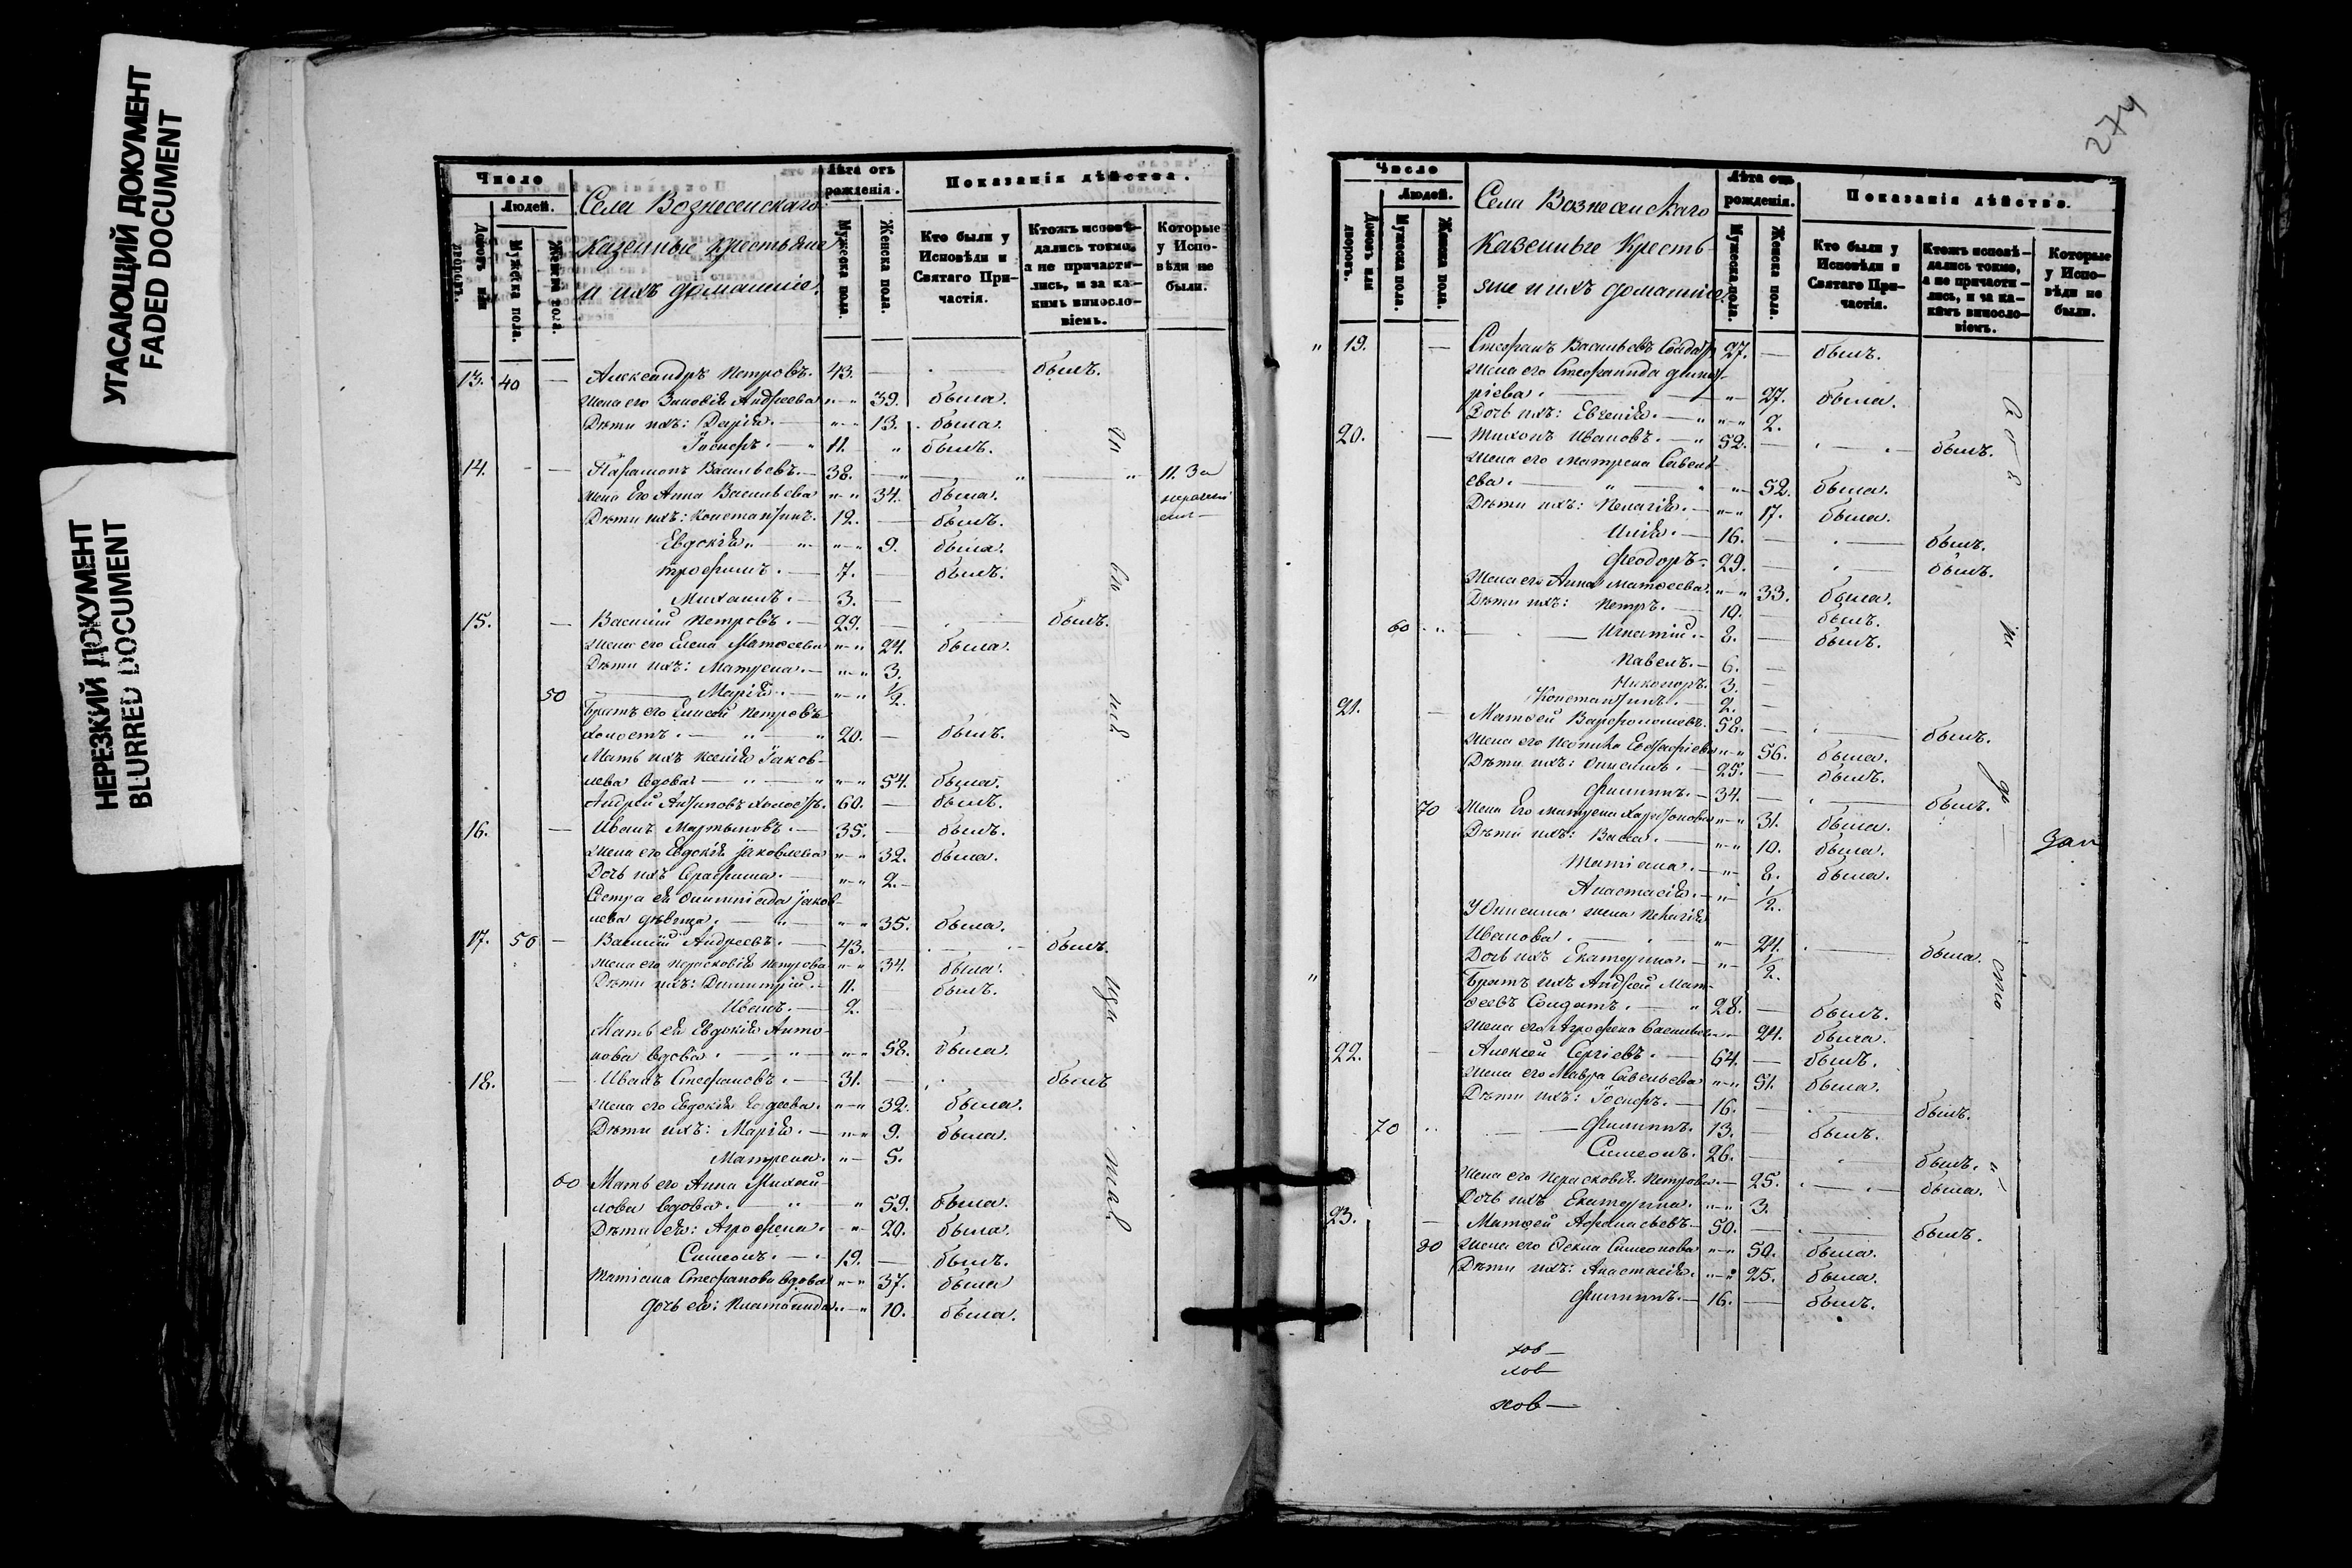 УГАСАЮЩИЙ ДОКУМЕНТ
FADED DOCUMENT
НЕРЕЗКИЙ ДОКУМЕНТ
BLURRED DOCUMENT
Число
Людей.
Домовъ или дворовъ.
Мужеска пола.
Женска пола.
Села Вознесенскаго
казенные крестьяне
и ихъ домашніе.
Лѣта отъ рожденія.
Мужеска пола.
Женска пола.
Показанія дѣйства.
Кто были у Исповѣди и Святаго Причастія.
Ктожъ исповѣдались токмо, а не причастились, и за какимъ винословіемъ.
Которые у Исповѣди не были.
13. 40 — Александръ Петровъ. 43. — былъ.
Жена его Зиновія Андреева " — " 39. была.
Дѣти ихъ: Дарія. — " — " 13. была.
Іосифъ. — " 11. " былъ.
14. — — Парамонъ Васильевъ. — 38. — " — " 11. За
Жена Его Анна Васильева " — " 34. была.
Дѣти ихъ: Константинъ. 12. — былъ.
Евдокія. — " " — " 9. была.
Трофимъ. — 7. — былъ.
Михаилъ. — 3. —
15. — Василій Петровъ. — 29. — былъ.
Жена его Елена Матѳеева " — " 24. была.
Дѣти ихъ: Матрена. — " — " 3.
50 — Марія. — " — " 1/2.
Братъ его Елисей Петровъ
холостъ. — " — " 20. — былъ.
Мать ихъ Ксенія Іаков-
лева вдова. — " — " " — " 54. была.
Андрей Антиповъ холостъ. 60. — былъ.
16. — Иванъ Мартыновъ. — 35. — былъ.
Жена его Евдокія Іаковлева " — " 32. была.
Дочь ихъ Серафима. — " — " 2. —
Сестра ея Олимпіада Іаков-
лева дѣвица. — " — " — " 35. была.
17. 50 — Василій Андреевъ. — 43. — былъ.
Жена его Парасковія Петрова " — " 34. была.
Дѣти ихъ: Димитрій. — 11. — былъ.
Иванъ. — 2. —
Мать ея Евдокія Анто-
нова вдова. — " — " — " 58. была.
18. — Иванъ Стефановъ. — 31. — былъ
Жена его Евдокія " — " 32. была.
Дѣти ихъ: Марія. — " — " 9. была.
Матрена. " — 5.
60 Мать его Анна Михай-
лова вдова. — " — " 59. была.
Дѣти ея: Агрофена. " — " 20. была.
Симеонъ. — 19. — былъ.
Татіана Стефанова вдова " — " 37. была
Дочь ея: Платонида. " — " 10. была.
274
Число
Людей.
Домовъ или дворовъ.
Мужеска пола.
Женска пола.
Села Вознесенскаго
Казенные Кресть-
яне и ихъ домашніе
Лѣта отъ рожденія.
Мужеска пола.
Женска пола.
Показанія дѣйства.
Кто были у Исповѣди и Святаго Причастія.
Ктожъ исповѣдались токмо, а не причастились, и за какимъ винословіемъ.
Которые у Исповѣди не были.
" 19. — Стефанъ Васильевъ 27. — былъ.
Жена его Стефанида Димит-
ріева. — " — 27. была.
Дочь ихъ: Евгенія. — " " — " 2.
20. — Тихонъ Ивановъ. — " 52. — былъ.
Жена его Матрена Савель-
ева. — " " — 52. была.
Дѣти ихъ: Пелагія. — " — " 17. была.
Илія. — 16. — былъ.
Феодоръ. 29. — былъ.
Жена его Анна Матѳеева. " — " 33. была.
Дѣти ихъ: Петръ. — 10. былъ.
60 " — Игнатій. — 8. — былъ.
Павелъ. — 6. —
Никоноръ. 3. —
Константинъ. — 2. —
21. — Матѳей Варфоломеевъ. 58. — былъ.
Жена его " — " 56. была.
Дѣти ихъ: Онисимъ. — 25. — былъ.
Филиппъ. — 34. — былъ.
70 Жена Его Матрена Харитонова " — " 31. была.
Дѣти ихъ: Васса. — " — " 10. была.
Татіана. — " — 8. была.
Анастасія. — " — 1/2.
У Онисима жена Пелагія
Иванова. — " — 24. — была.
Дочь ихъ Екатерина. — " — 1/2.
" Братъ ихъ Андрей Мат-
ѳеевъ Солдатъ. — " 28. — былъ.
Жена его Агрофена Васильева — 24. была.
22. — Алексей Сергіевъ. — 64. — былъ.
Жена его Мавра Савельева " — " 51. была.
Дѣти ихъ: Іосифъ. — 16. — былъ.
70 " — Филиппъ. 13. — былъ.
Симеонъ. 26. — былъ.
Жена его Парасковія Петрова. — 25. — была.
Дочь ихъ Екатерина. " — " 3.
23. — Матѳей Афанасьевъ — 50. — былъ.
80 Жена его Ѳекла Симеонова " — " 50. была.
Дѣти ихъ: Анастасія. " — " 25. была.
Филиппъ. — 16. — былъ.
хов —
хов
хов —